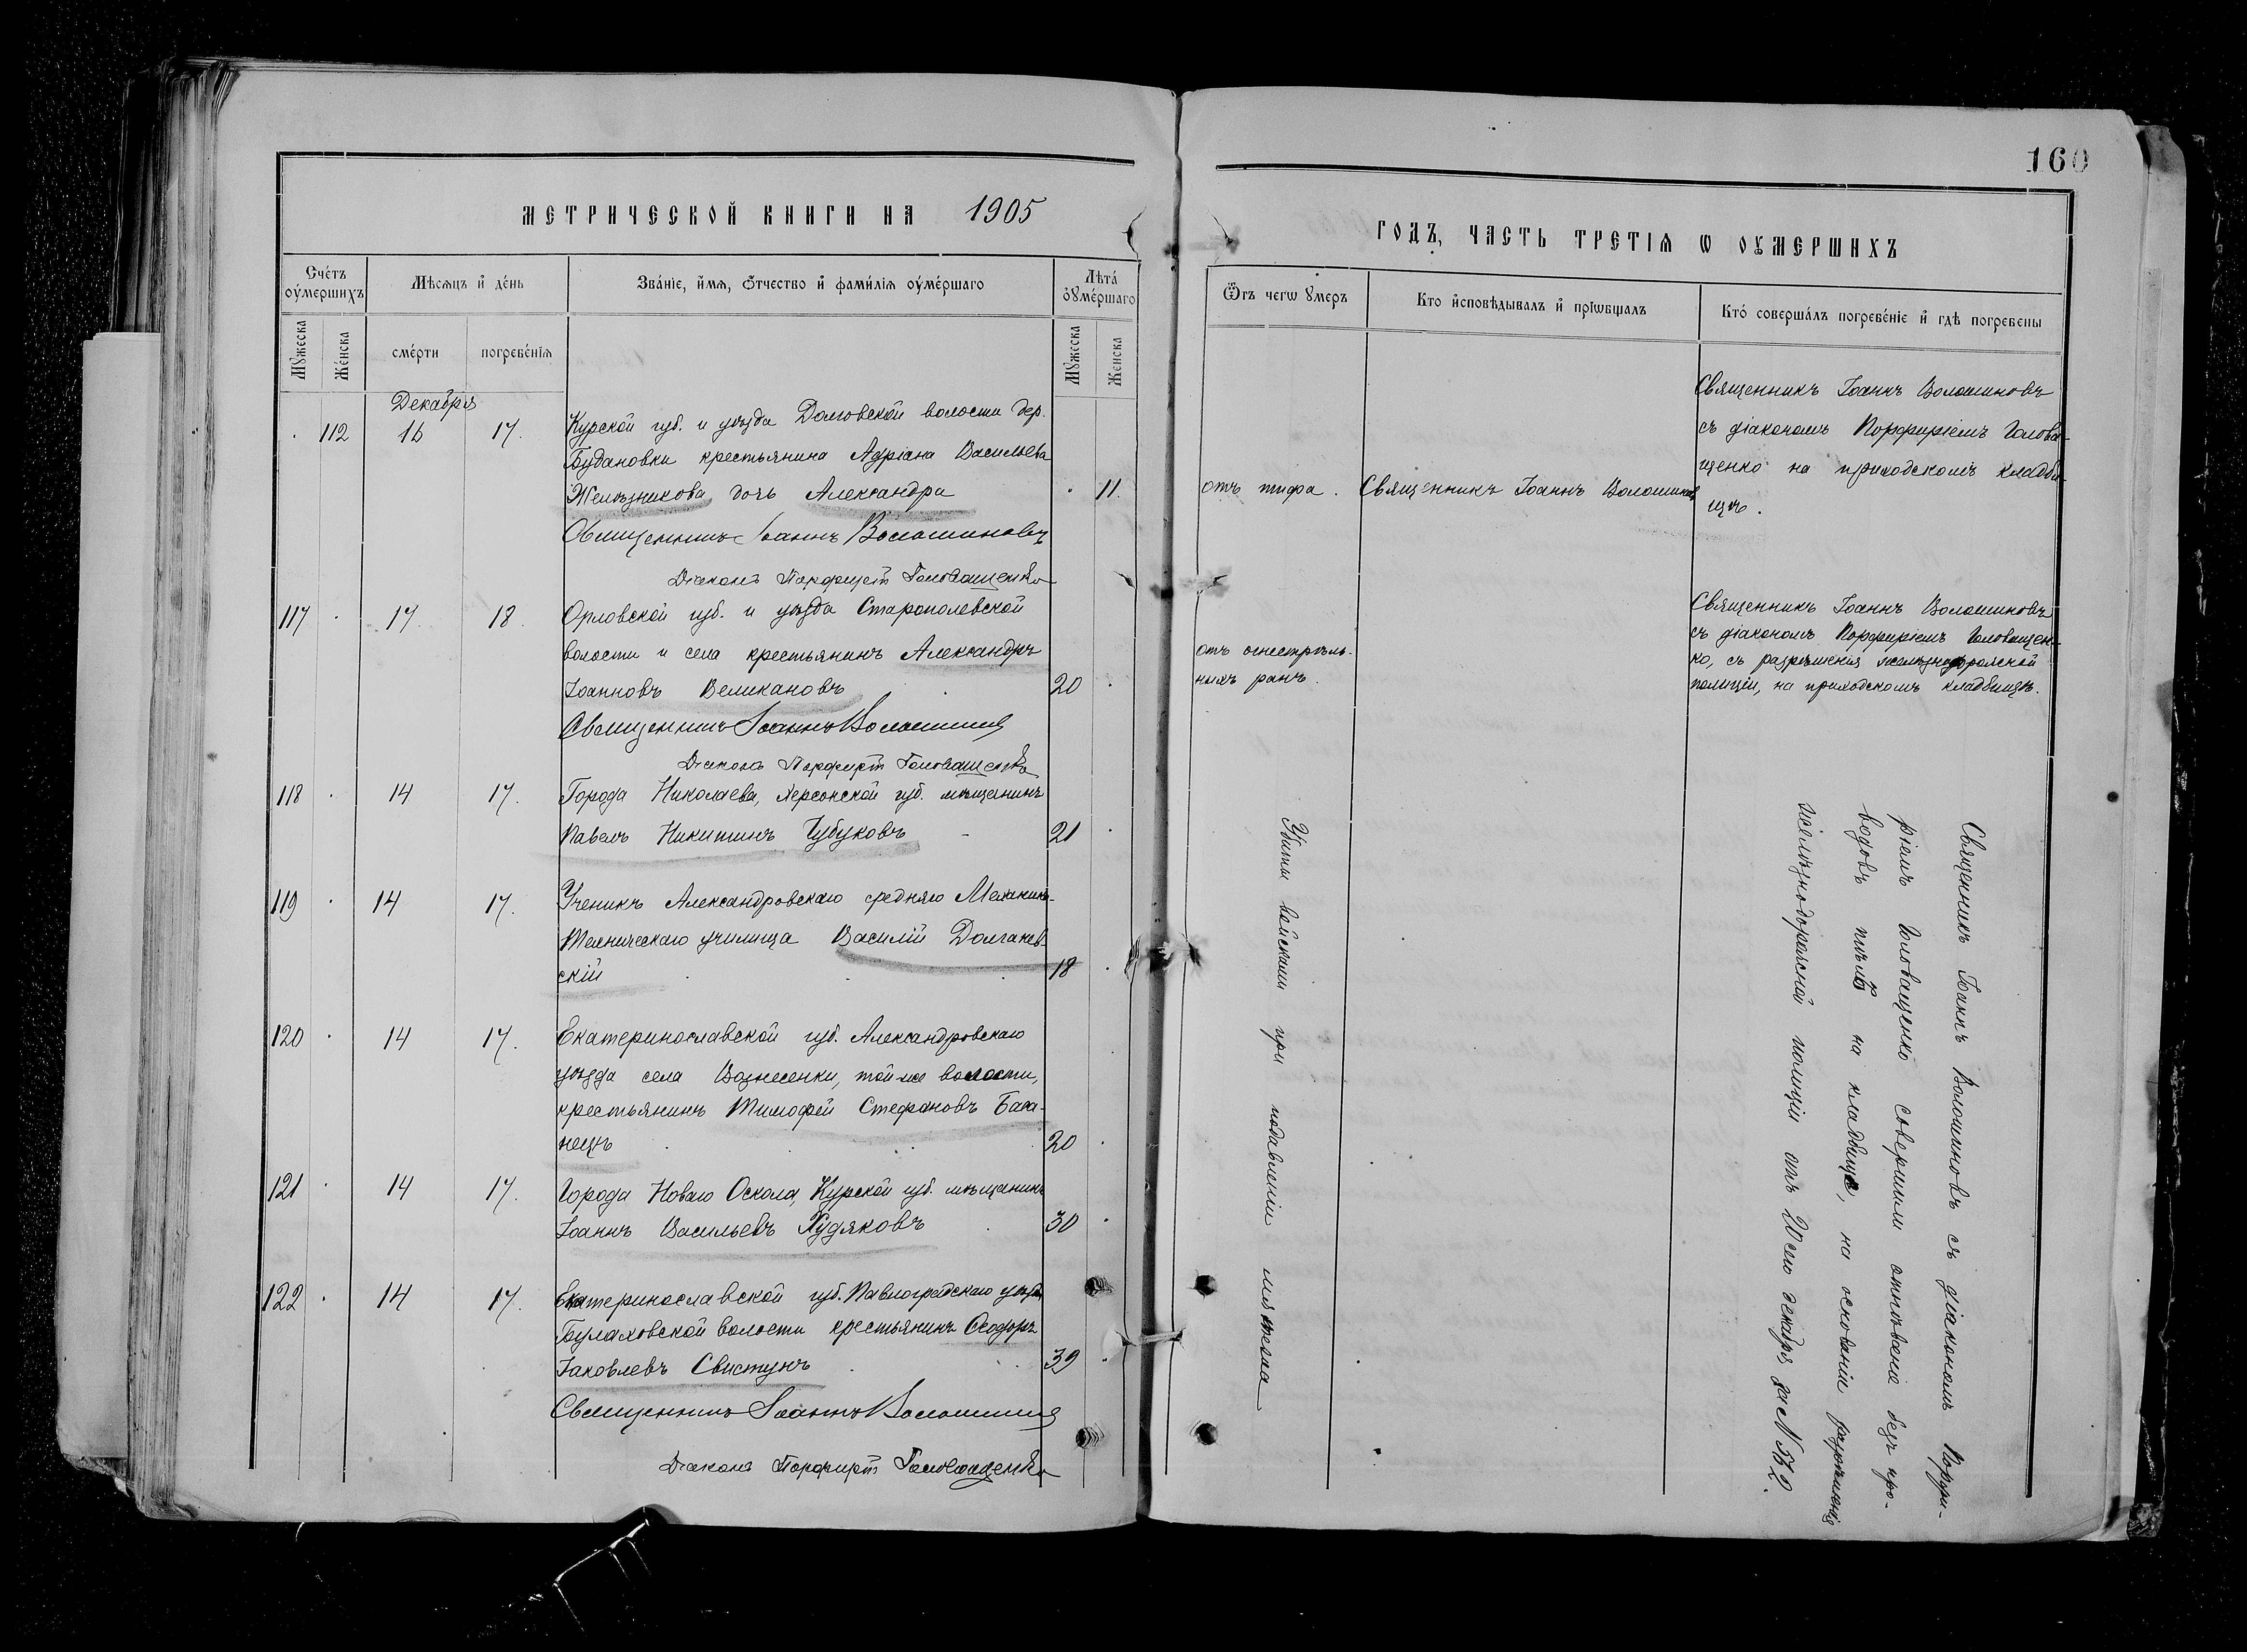 160
МЕТРИЧЕСКОЙ КНИГИ НА 1905
ГОДЪ, ЧАСТЬ ТРЕТІѦ Ѡ ОУМЕРШИХЪ
Счетъ оумершихъ
Мѣсяцъ и день
Званіе, имя, отчество и фамилія оумершаго
Лѣта оумершаго
Мужеска
Женска
смерти
погребенія
Мужеска
Женска
Ѿ чегѡ умеръ
Кто исповѣдывалъ и пріѡбщалъ
Кто совершалъ погребеніе и гдѣ погребены
Декабря
. 112 16 17.
Курской губ. и уѣзда Долговской волости дер.
Будановки крестьянина Адріана Васильева
Желѣзникова, дочь Александра . 11.
отъ тифа.
Священникъ Іоаннъ Волошиновъ
Священникъ Іоаннъ Волошиновъ
съ діакономъ Порфиріемъ Голова-
щенко на приходскомъ кладби-
щѣ.
Священникъ Іоаннъ Волошиновъ
Діаконъ Порфирій Головащенко
117 . 17 18.
Орловской губ. и уѣзда Старополевской
волости и села крестьянинъ Александръ
Іоанновъ Великановъ 20 .
отъ огнестрѣль-
ныхъ ранъ.
Священникъ Іоаннъ Волошиновъ
съ діакономъ Порфиріемъ Головащен-
ко, съ разрѣшенія желѣзнодорожной
полиціи, на приходскомъ кладбищѣ.
Священникъ Іоаннъ Волошиновъ
Діаконъ Порфирій Головащенко
118 . 14 17.
Города Николаева, Херсонской губ. мѣщанинъ
Павелъ Никитинъ Чубуковъ 21 .
119 . 14 17.
Ученикъ Александровскаго средняго Механико-
Техническаго училища Василій Долганев-
скій 18 .
120 . 14 17.
Екатеринославской губ. Александровскаго
уѣзда села Вознесенки, той-же волости,
крестьянинъ Тимофей Стефановъ Бага-
нецъ 20 .
121 . 14 17.
Города Новаго Оскола, Курской губ. мѣщанинъ
Іоаннъ Васильевъ Худяковъ 30 .
122 . 14 17.
Екатеринославской губ. Павлоградскаго уѣзда
Булаховской волости крестьянинъ Ѳеодоръ
Іаковлевъ Свистунъ 39 .
Священникъ Іоаннъ Волошиновъ
Діаконъ Порфирій Головащенко
Убиты войсками при подавленіи мятежа
Священникъ Іоаннъ Волошиновъ съ діакономъ Порфи-
ріемъ Головащенко совершили отпѣваніе безъ про-
водовъ тѣлъ на кладбище, на основаніи разрѣшенія
желѣзнодорожной полиціи отъ 20 сего декабря за №